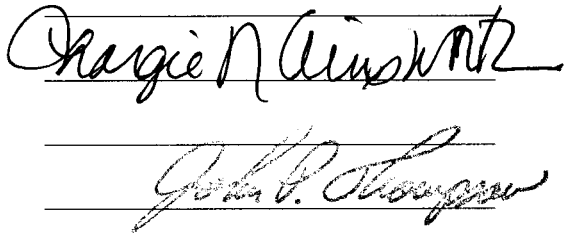 Margie N Ainsworth
John P. Thompson